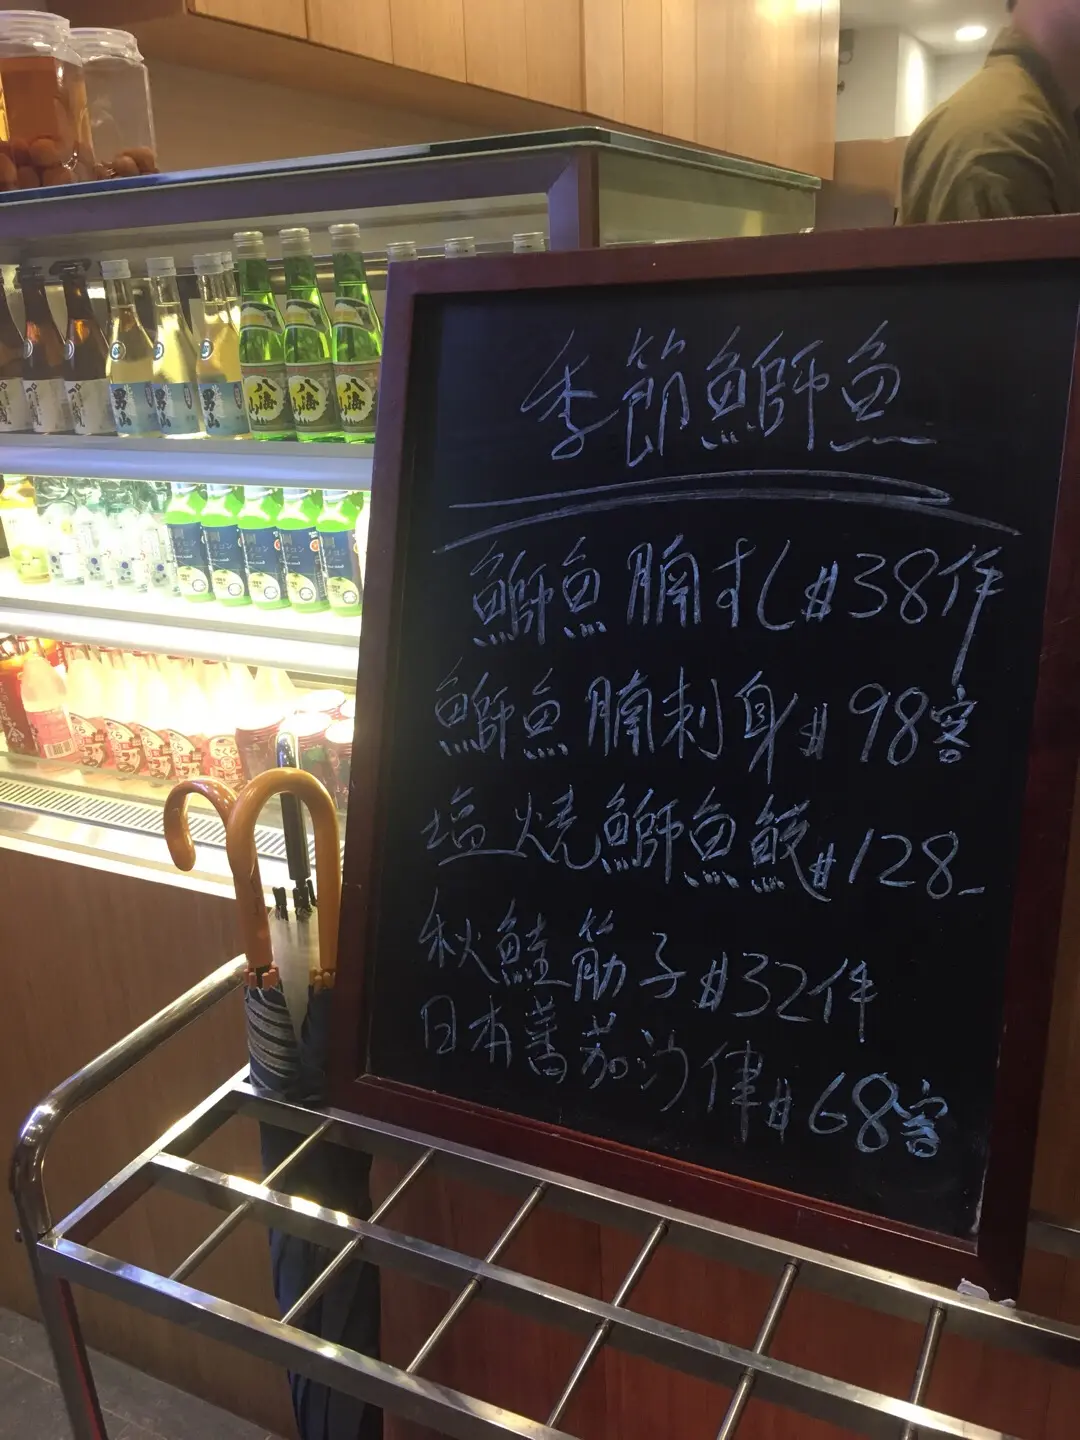 季節鰤魚
鰤魚腩すし #38件
鰤魚腩刺身 #98客
塩燒鰤魚鮫 #128-
秋鮭筋子 #32件
日本蕃茄沙律 #68客
男山
男山
男山
八海山
八海山
八海山